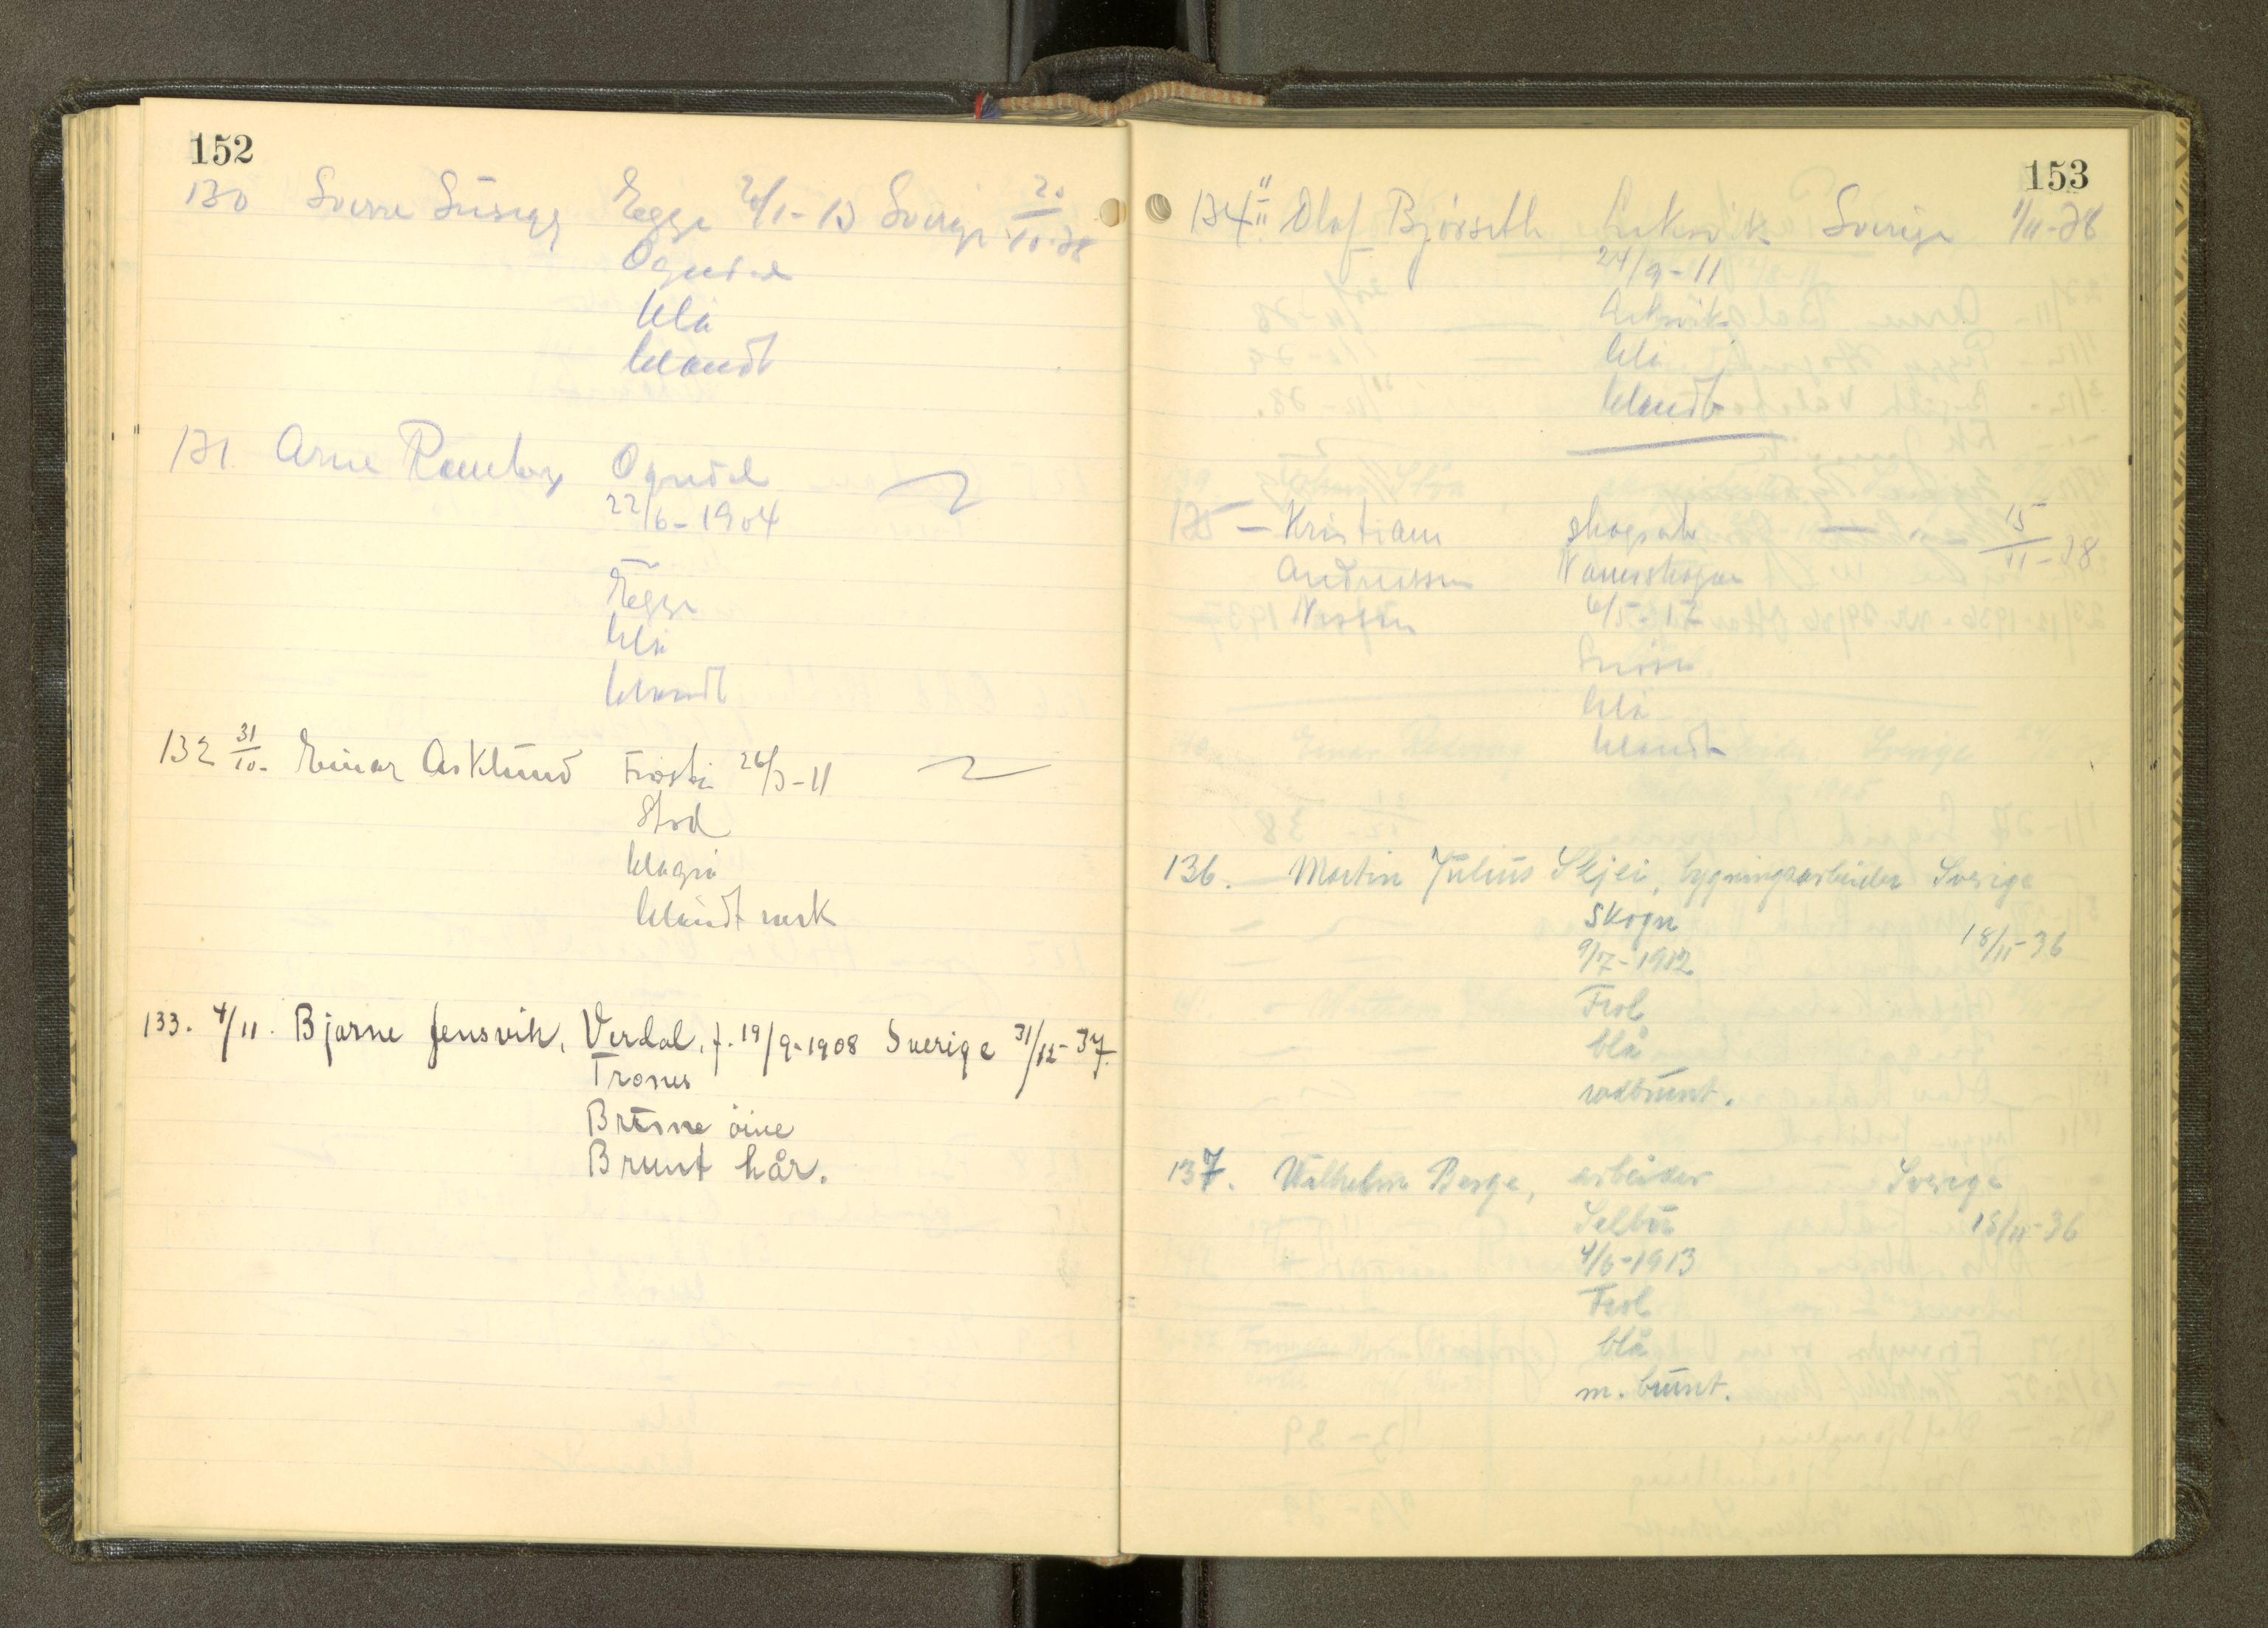 152
130 Sverre Egge 2/1-13 Sverige 20/10-38
Ogndal
blå
blondt
131 Arne Ogndal
22/6-1904
Egge
blå
blondt
132 31/10- Einar Asklund Frosta 26/3-11
Stod
blågrå
blondt mørk
133. 4/11. Bjarne Jensvik, Verdal, f. 19/9-1908 Sverige 31/12-37.
Trones
Brune öine
Brunt hår.
153
134 11/11 Olaf Bjørseth Leksvik Sverige 1/11-38
24/9-11
Leksvik
blå
blondt
135 — Kristian skogsarb — " — 15/11-38
Andressen Namsskogan
6/5-17
Snåsa
blå
blondt
136. — Martin Julius Skjei, bygningsarbeider Sverige
Skogn
9/7-1912 18/11-36
Frol
blå
rødbrunt.
137. Wilhelm Berge, arbeider Sverige
Selbu 18/11-36
4/6-1913
Frol
blå
m. brunt.